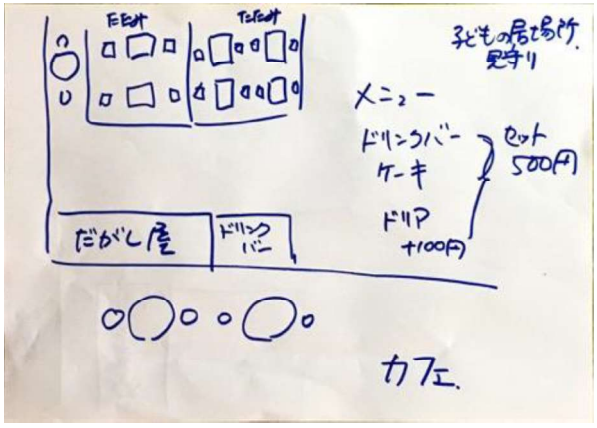 たたみ
たたみ
子どもの居場所
見守り
メニュー
ドリンクバー
ケーキ
セット
500円
ドリア
+100円
だがし屋
ドリンク
バー
カフェ.